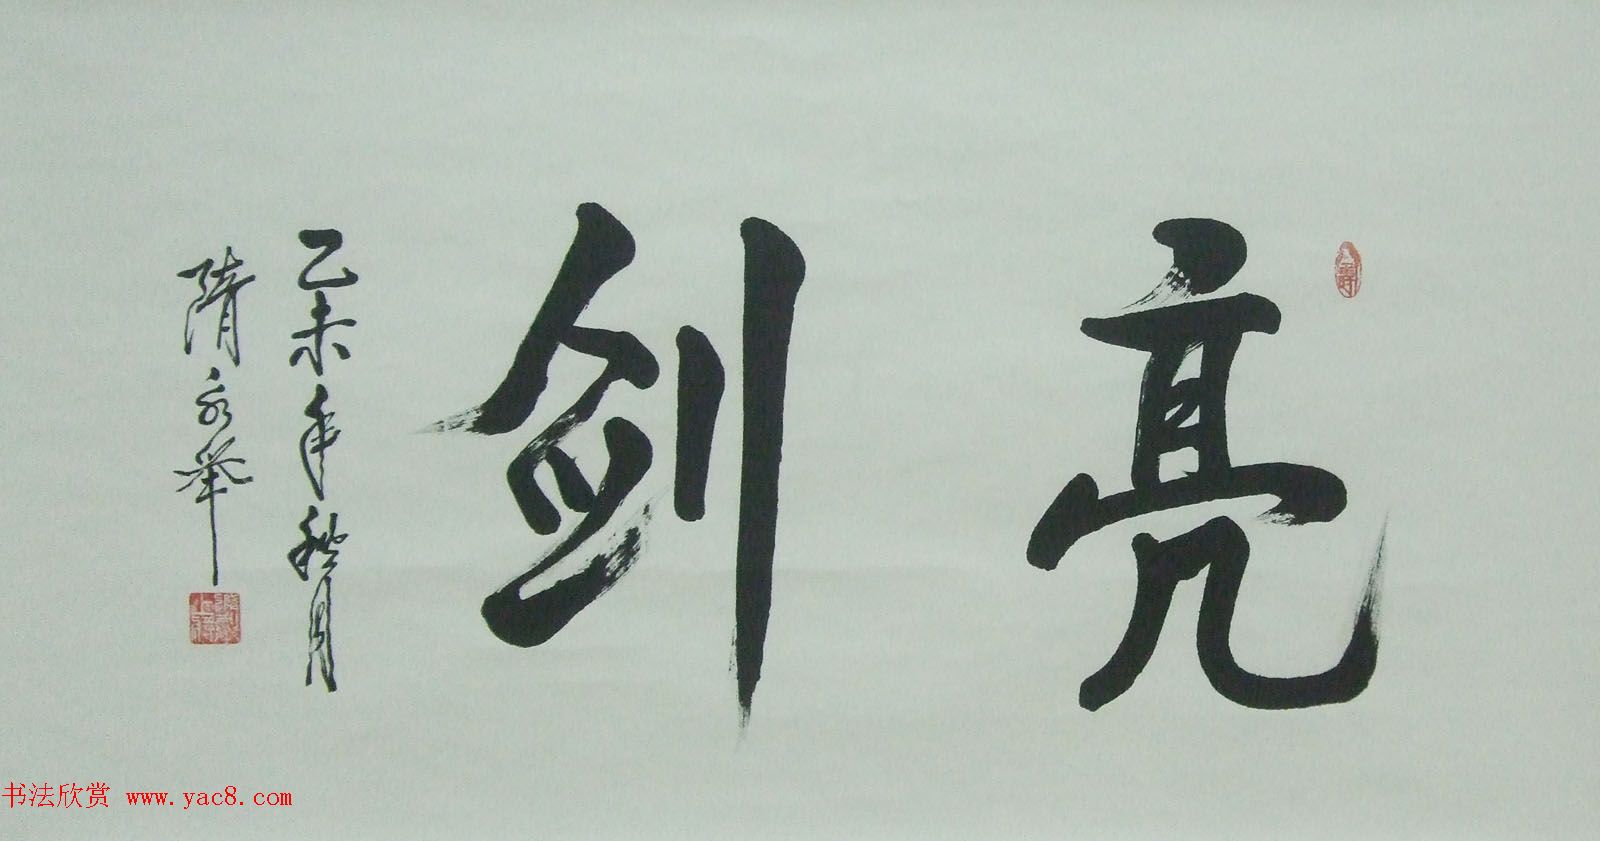 亮剑
乙未年秋月
隋永举
书法欣赏 www.yac8.com